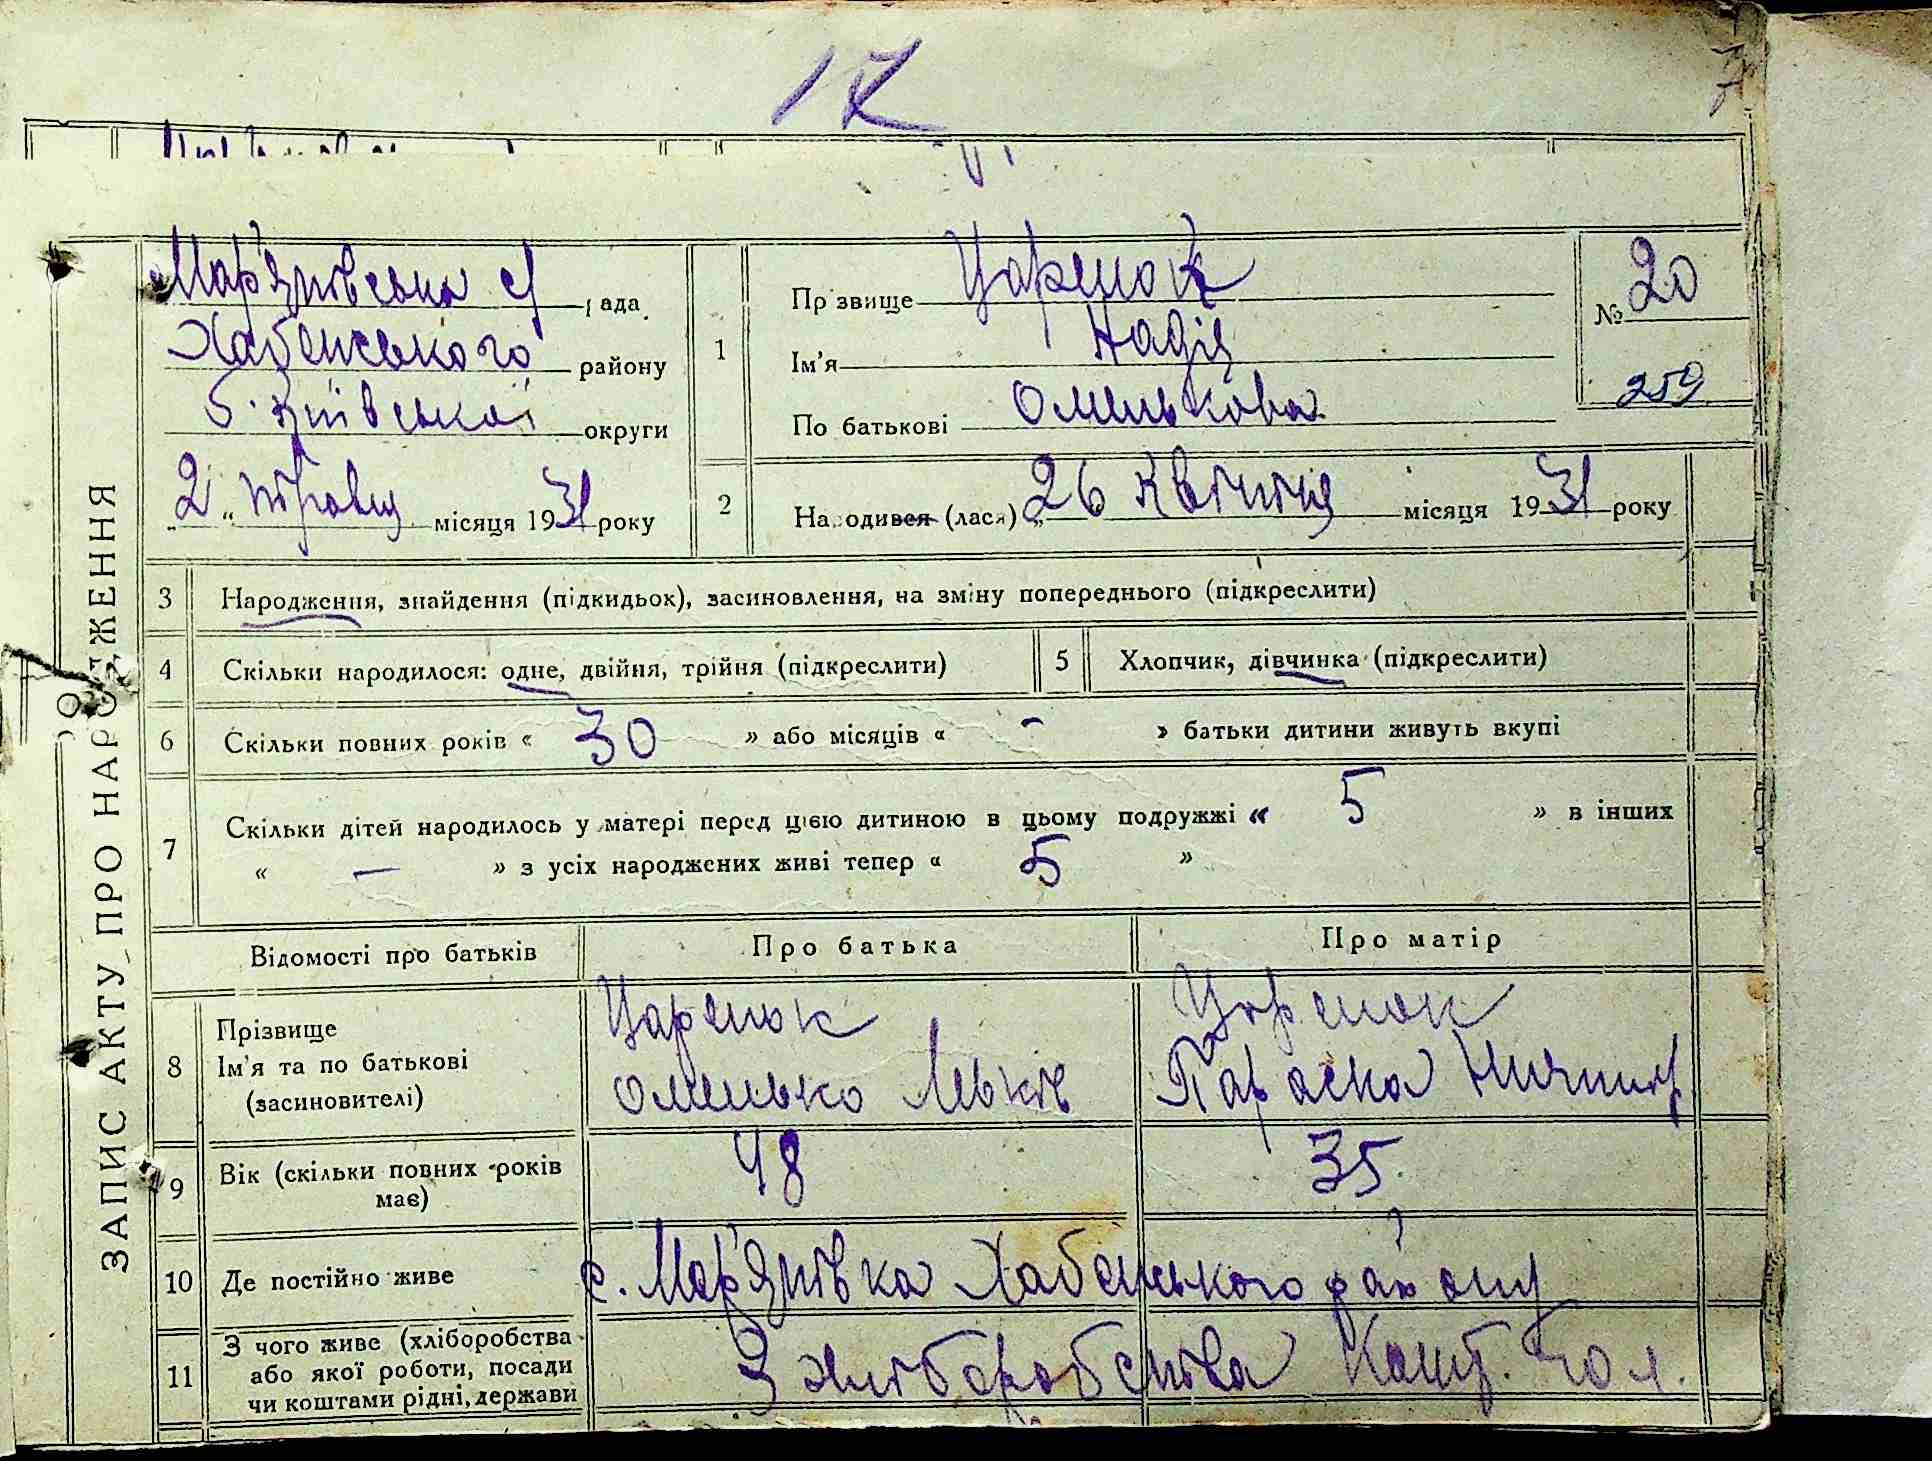 17
ЗАПИС АКТУ ПРО НАРОДЖЕННЯ
Мар'янівська с/рада
Хабенського району
б. Київської округи
„2“ травня місяця 1931 року
1
Прізвище Царенок
Ім'я Надія
По батькові Оменькова
№ 20
259
2
Народився (лася) „26“ Квітня місяця 1931 року
3 Народження, знайдення (підкидьок), засиновлення, на зміну попереднього (підкреслити)
4 Скільки народилося: одне, двійня, трійня (підкреслити)
5 Хлопчик, дівчинка (підкреслити)
6 Скільки повних років « 30 » або місяців « - » батьки дитини живуть вкупі
7 Скільки дітей народилось у матері перед цією дитиною в цьому подружжі « 5 » в інших
« — » з усіх народжених живі тепер « 5 »
Відомості про батьків
Про батька
Про матір
8 Прізвище
Ім'я та по батькові
(засиновителі)
Царенок
Оменько Льків
Царенок
Параска
9 Вік (скільки повних років
має)
48
35
10 Де постійно живе
с. Мар'янівка Хабенського району
11 З чого живе (хліборобства
або якої роботи, посади
чи коштами рідні, держави
З хліборобства